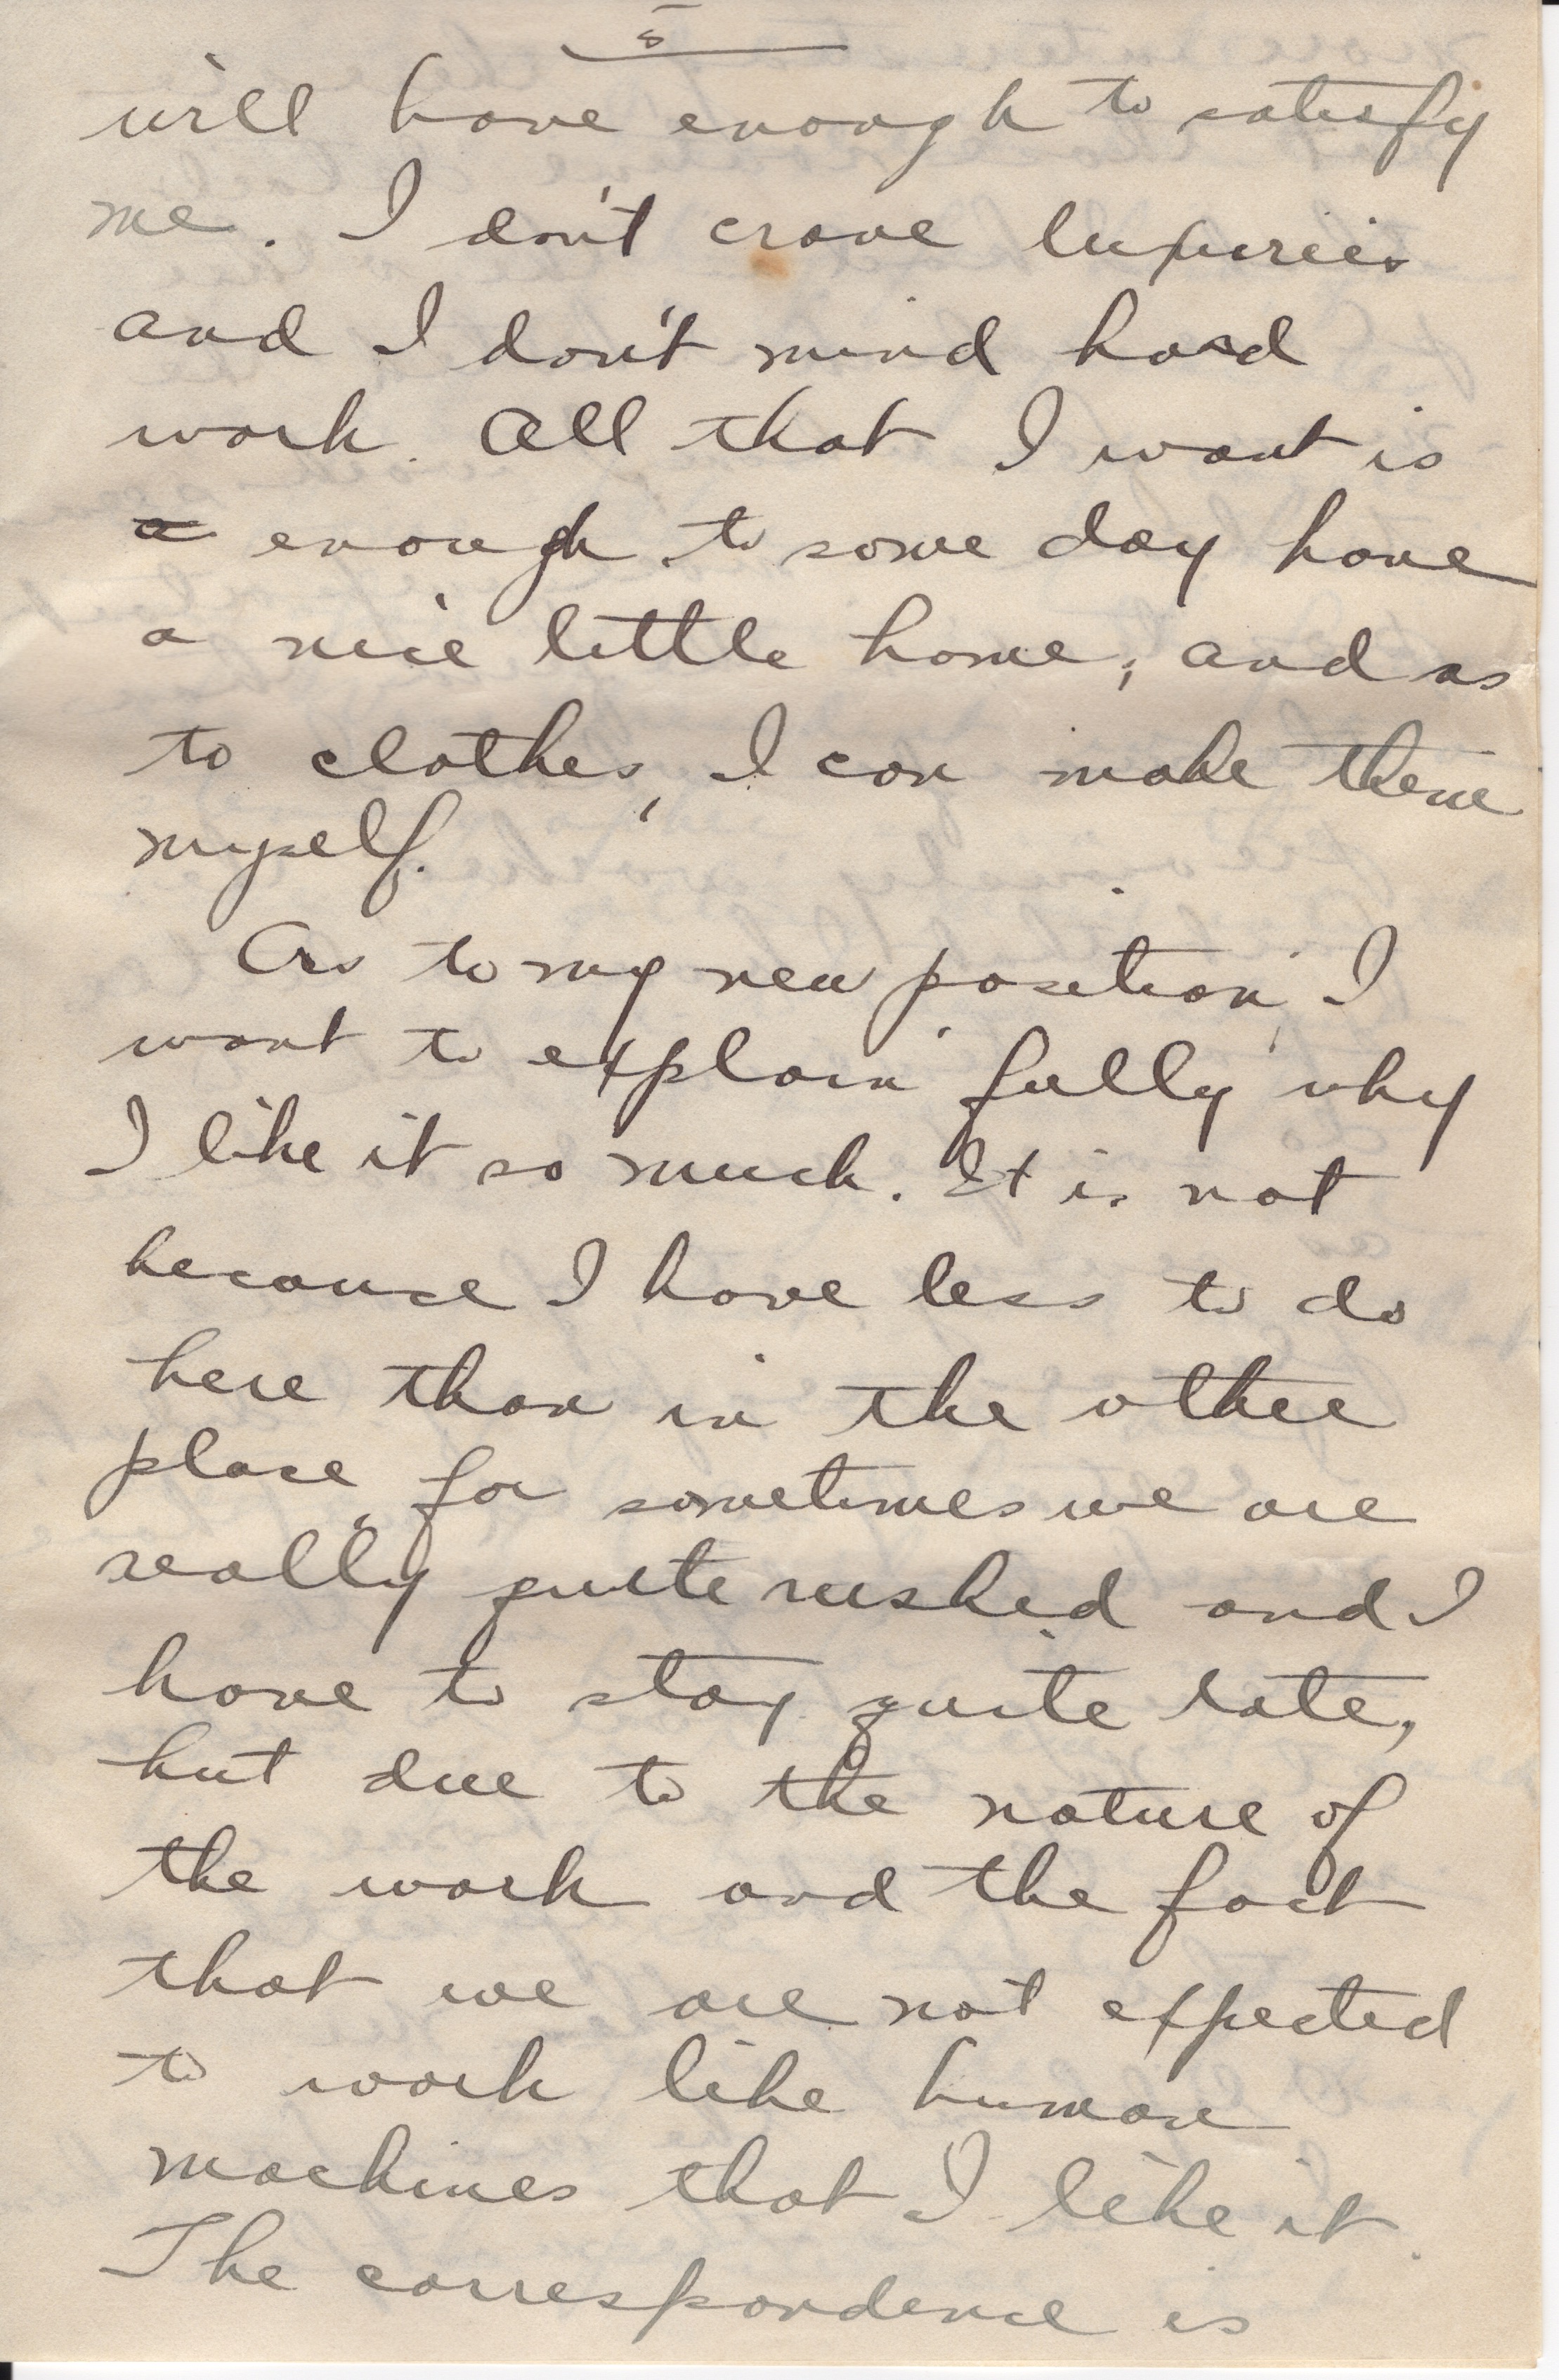 5
will have enough to satisfy
me. I don't crave luxuries
and I don't mind hard
work. All that I want is
a enough to some day have
a nice little home; and as
to clothes, I can make them
myself.
As to my new position, I
want to explain fully why
I like it so much. It is not
because I have less to do
here than in the other
place, for sometimes we are
really quite rushed and I
have to stay quite late,
but due to the nature of
the work and the fact
that we are not expected
to work like human
machines that I like it.
The correspondence is